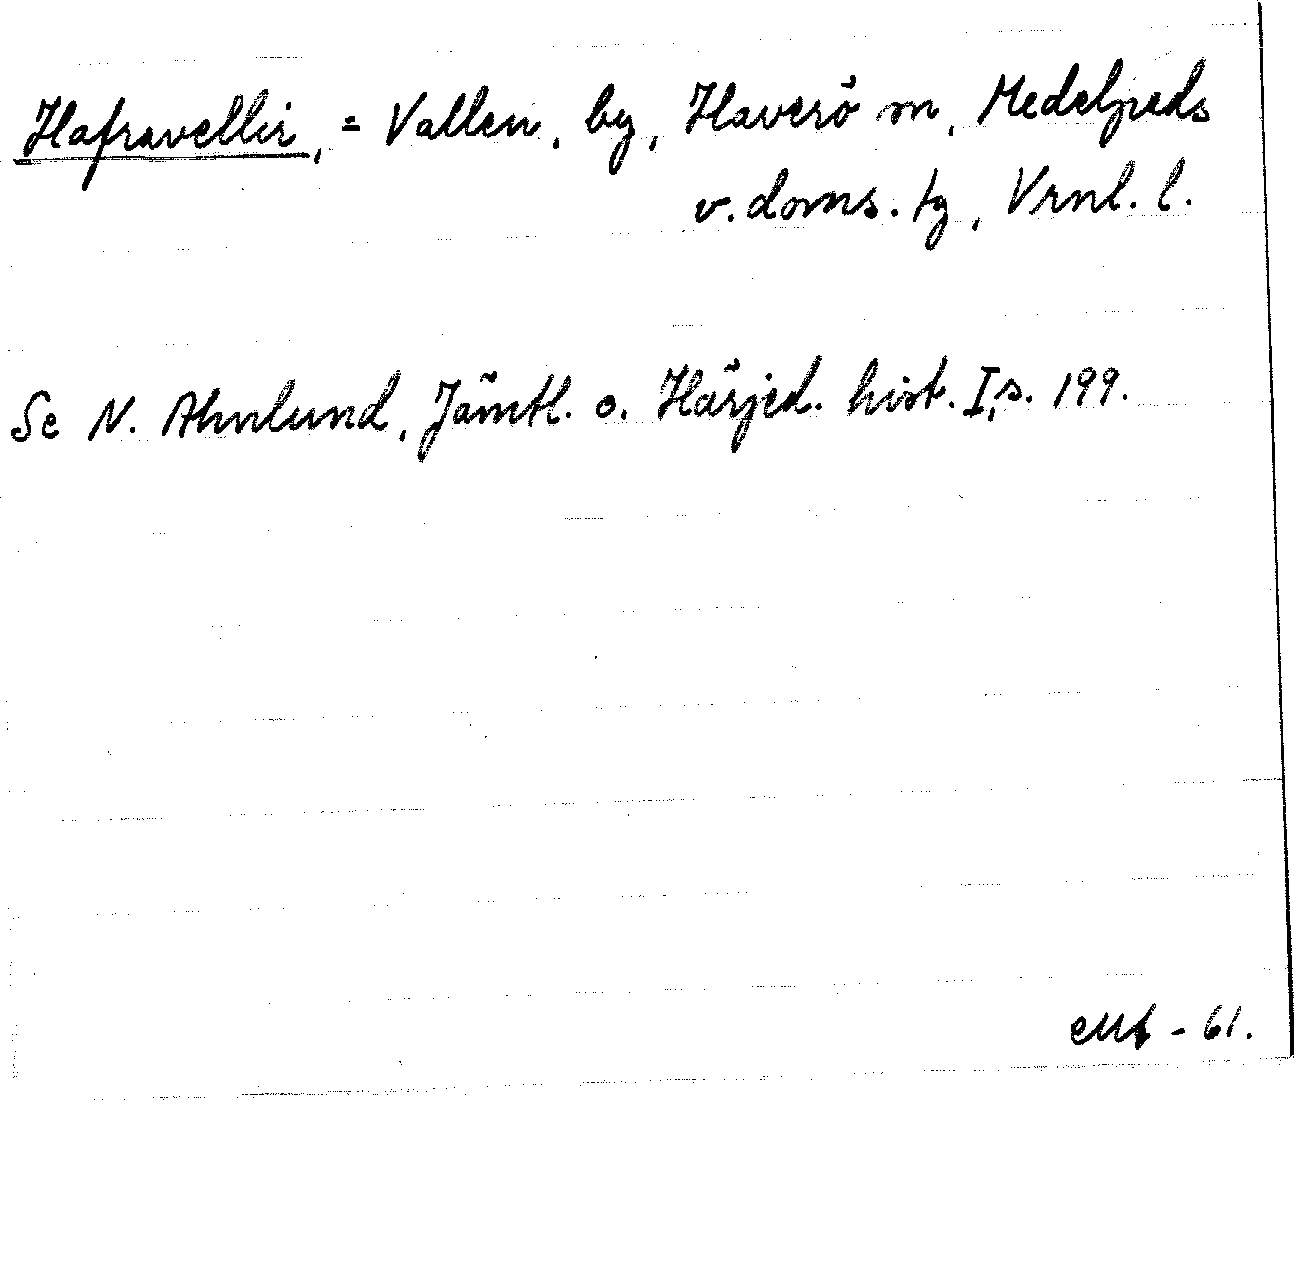 Hafravellir, = Vallen, by, Haverö sn, Medelpads
v. doms. tg, Vrnl. l.
Se N. Ahnlund, Jämtl. o. Härjed. hist. I, s. 199.
- 61.